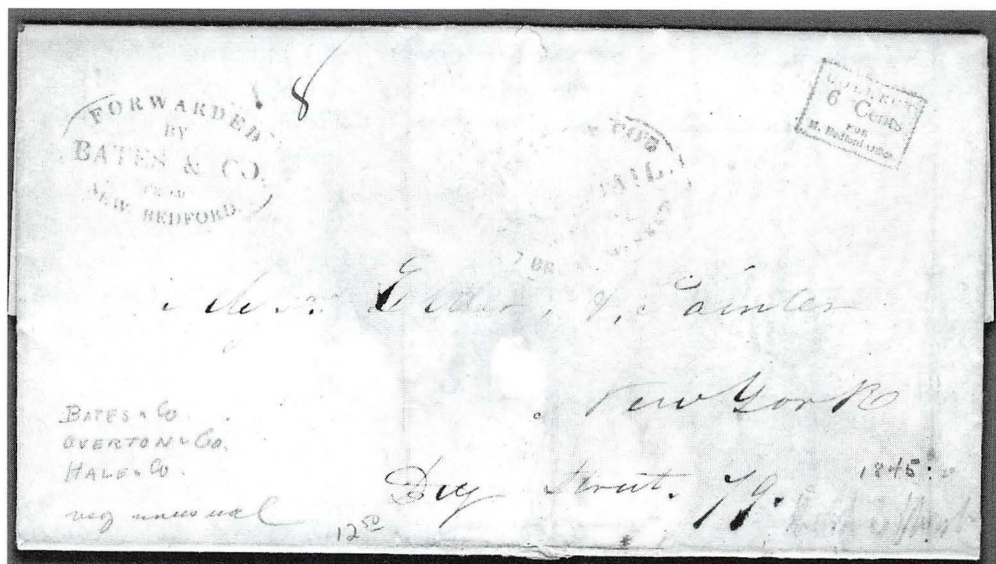 8
FORWARDED
BY
BATES & CO.
FROM
NEW BEDFORD.
CO'S
MAIL.
COLLECT
6 Cents
FOR
Messrs. & Painter
New York
Dey Street. 79.
BATES & Co.
OVERTON & Co.
HALE & Co.
very unusual
12 50
1845